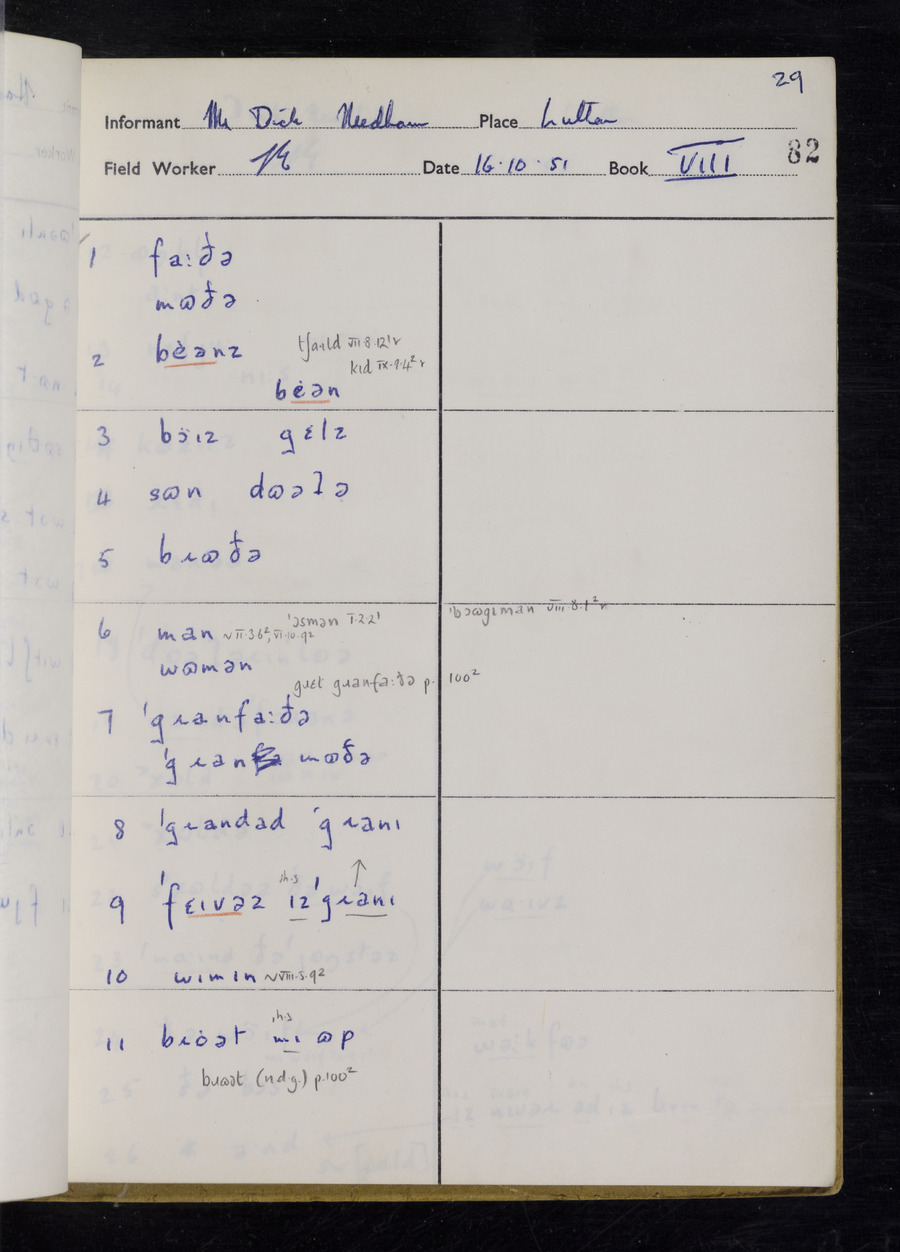 29
Informant Mr Dick Needham Place Lutton
Field Worker Date 16·10·51 Book VIII 82
1 fa:ðə
mɷðə
2 bėənz tʃaɪld VII·8·12¹r
kɪd IX·9·4²r
bėən
3 bɔ̈ɪz gɛlz
4 sɷn dɷəʔə
5 bɹɷðə
6 man ~VII·3·6², VI·10·9² ˈəsmən I·2·2¹ ˈbɔɷgɪman VIII·8·1²r
wɷmən
gɹɛt gɹanfa:ðə p. 100²
7 ˈgɹanfa:ðə
ˈgɹan mɷðə
8 ˈgɹandad ˈgɹanɪ
i.h.s ↑
9 ˈfɛɪvəz ɪz ˈgɹanɪ
10 wɪmɪn ~VIII·5·9²
i.h.s
11 bɹȯət mɪ ɷp
bɹɷət (n.d.g.) p.100²